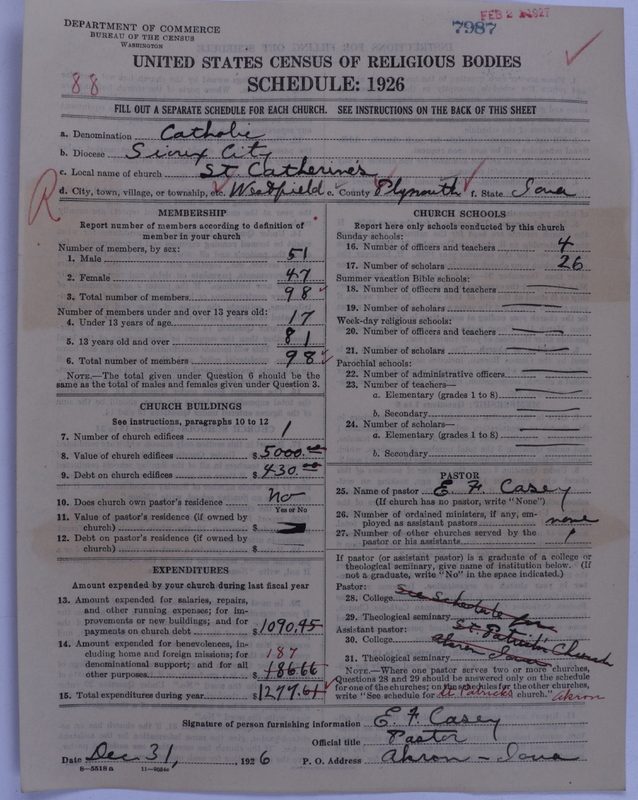 DEPARTMENT OF COMMERCE
BUREAU OF THE CENSUS
WASHINGTON
7987
FEB 2 1927
UNITED STATES CENSUS OF RELIGIOUS BODIES
SCHEDULE: 1926
88
FILL OUT A SEPARATE SCHEDULE FOR EACH CHURCH. SEE INSTRUCTIONS ON THE BACK OF THIS SHEET
a. Denomination Catholic
b. Diocese Sioux City
c. Local name of church St. Catherine's
d. City, town, village, or township, etc. Westfield e. County Plymouth f. State Iowa
R
MEMBERSHIP
Report number of members according to definition of member in your church
Number of members, by sex:
1. Male 51
2. Female 47
3. Total number of members 98
Number of members under and over 13 years old:
4. Under 13 years of age 17
5. 13 years old and over 81
6. Total number of members 98
NOTE.—The total given under Question 6 should be the same as the total of males and females given under Question 3.
CHURCH BUILDINGS
See instructions, paragraphs 10 to 12
7. Number of church edifices 1
8. Value of church edifices $5000.00
9. Debt on church edifices $430.00
10. Does church own pastor's residence no
Yes or No
11. Value of pastor's residence (if owned by church) $
12. Debt on pastor's residence (if owned by church) $
EXPENDITURES
Amount expended by your church during last fiscal year
13. Amount expended for salaries, repairs, and other running expenses; for improvements or new buildings; and for payments on church debt $1090.95
14. Amount expended for benevolences, including home and foreign missions; for denominational support; and for all other purposes $186.66
187
15. Total expenditures during year $1277.61
CHURCH SCHOOLS
Report here only schools conducted by this church
Sunday schools:
16. Number of officers and teachers 4
17. Number of scholars 26
Summer vacation Bible schools:
18. Number of officers and teachers
19. Number of scholars
Week-day religious schools:
20. Number of officers and teachers
21. Number of scholars
Parochial schools:
22. Number of administrative officers
23. Number of teachers—
a. Elementary (grades 1 to 8)
b. Secondary
24. Number of scholars—
a. Elementary (grades 1 to 8)
b. Secondary
PASTOR
25. Name of pastor E. F. Casey
(If church has no pastor, write "None")
26. Number of ordained ministers, if any, employed as assistant pastors none
27. Number of other churches served by the pastor or his assistants 1
If pastor (or assistant pastor) is a graduate of a college or theological seminary, give name of institution below. (If not a graduate, write "No" in the space indicated.)
Pastor:
28. College See Schedule for
29. Theological seminary St. Patrick's Church
Assistant pastor:
30. College Akron Iowa
31. Theological seminary
NOTE.—Where one pastor serves two or more churches, Questions 28 and 29 should be answered only on the schedule for one of the churches; on the schedules for the other churches, write "See schedule for St Patricks church." Akron
Signature of person furnishing information E. F. Casey
Official title Pastor
Date Dec. 31, 1926 P. O. Address Akron - Iowa
8—5518 a